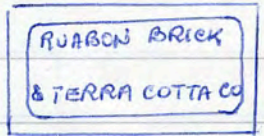 RUABON BRICK
& TERRA COTTA CO